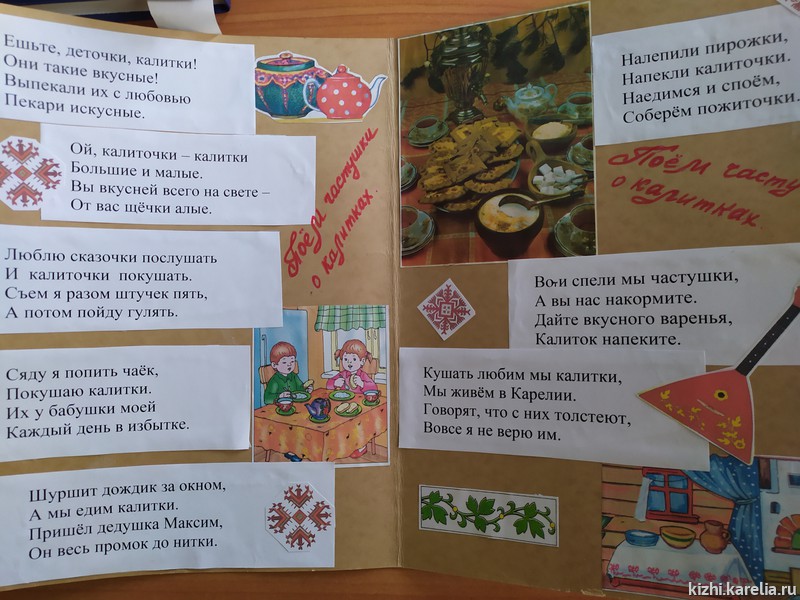 Ешьте, деточки, калитки!
Они такие вкусные!
Выпекали их с любовью
Пекари искусные.
Ой, калиточки – калитки
Большие и малые.
Вы вкусней всего на свете –
От вас щёчки алые.
Люблю сказочки послушать
И калиточки покушать.
Съем я разом штучек пять,
А потом пойду гулять.
Сяду я попить чаёк,
Покушаю калитки.
Их у бабушки моей
Каждый день в избытке.
Шуршит дождик за окном,
А мы едим калитки.
Пришёл дедушка Максим,
Он весь промок до нитки.
Поём частушки
о калитках.
Налепили пирожки,
Напекли калиточки.
Наедимся и споём,
Соберём пожиточки.
Поём часту
о калитках.
Вот и спели мы частушки,
А вы нас накормите.
Дайте вкусного варенья,
Калиток напеките.
Кушать любим мы калитки,
Мы живём в Карелии.
Говорят, что с них толстеют,
Вовсе я не верю им.
kizhi.karelia.ru